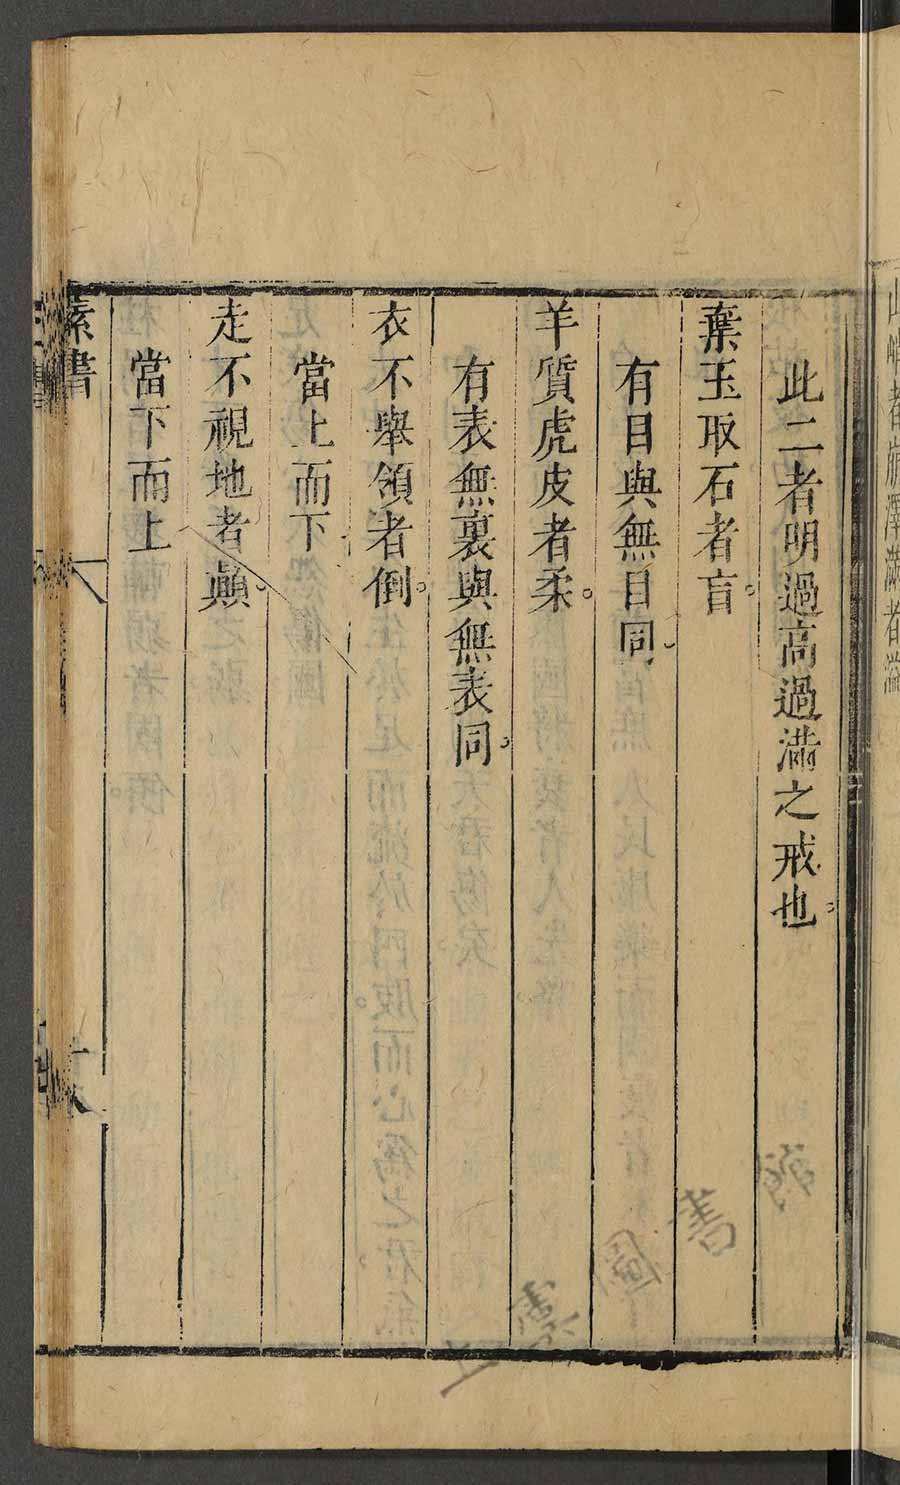 此二者明過高過滿之戒也
棄玉取石者盲
有目與無目同
羊質虎皮者柔
有表無裏與無表同
衣不舉領者倒
當上而下
走不視地者顛
當下而上
素書